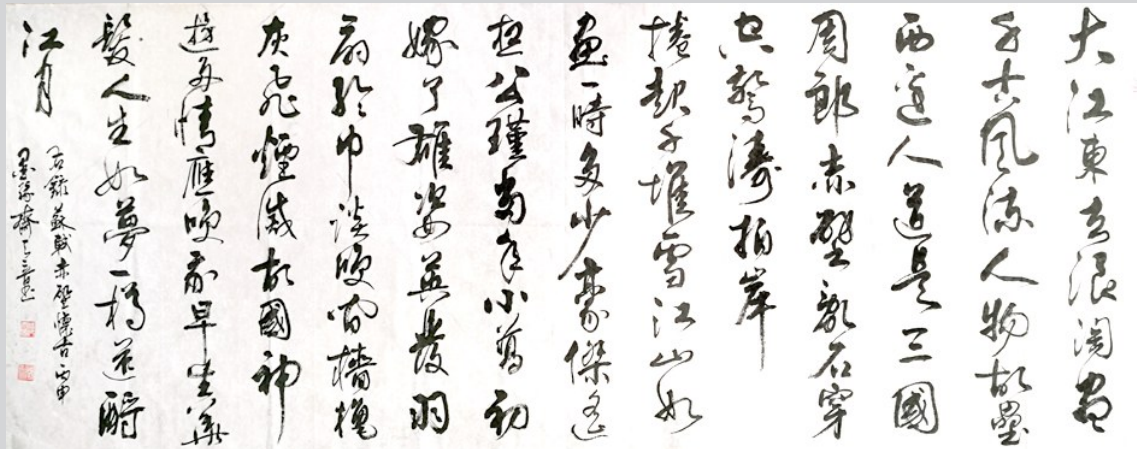 大江東去浪淘盡
千古風流人物故壘
西邊人道是三國
周郎赤壁亂石穿
空驚濤拍岸
捲起千堆雪江山如
畫一時多少豪傑遙
想公瑾當年小喬初
嫁了雄姿英發羽
扇綸巾談笑間檣櫓
灰飛煙滅故國神
遊多情應笑我早生華
髮人生如夢一樽還酹
江月
右錄蘇軾赤壁懷古丙申